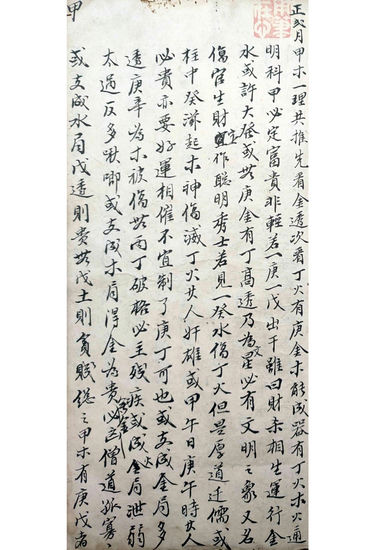 正二月甲木一理共推先看金透次看丁火有庚金木能成器有丁火木火通
明科甲必定富貴非輕若一庚一戊出干雖曰財未相生運行金
水或許大發或無庚金有丁高透乃為文星必有文明之象又名
傷官生財宜作聰明秀士若見一癸水傷丁火但是厚道迂儒或
柱中癸滋起木神傷滅丁火其人奸雄或甲午日庚午時其人
必貴亦要好運相催不宜制了庚丁可也或支成金局多
透庚辛為木被傷無丙丁破格必主殘疾或成火局泄弱
太過反多啾唧或支成木局得金為貴必無金僧道孤寡
或支成水局戊透則貴無戊土則貧賤總之甲木有庚戊者
甲